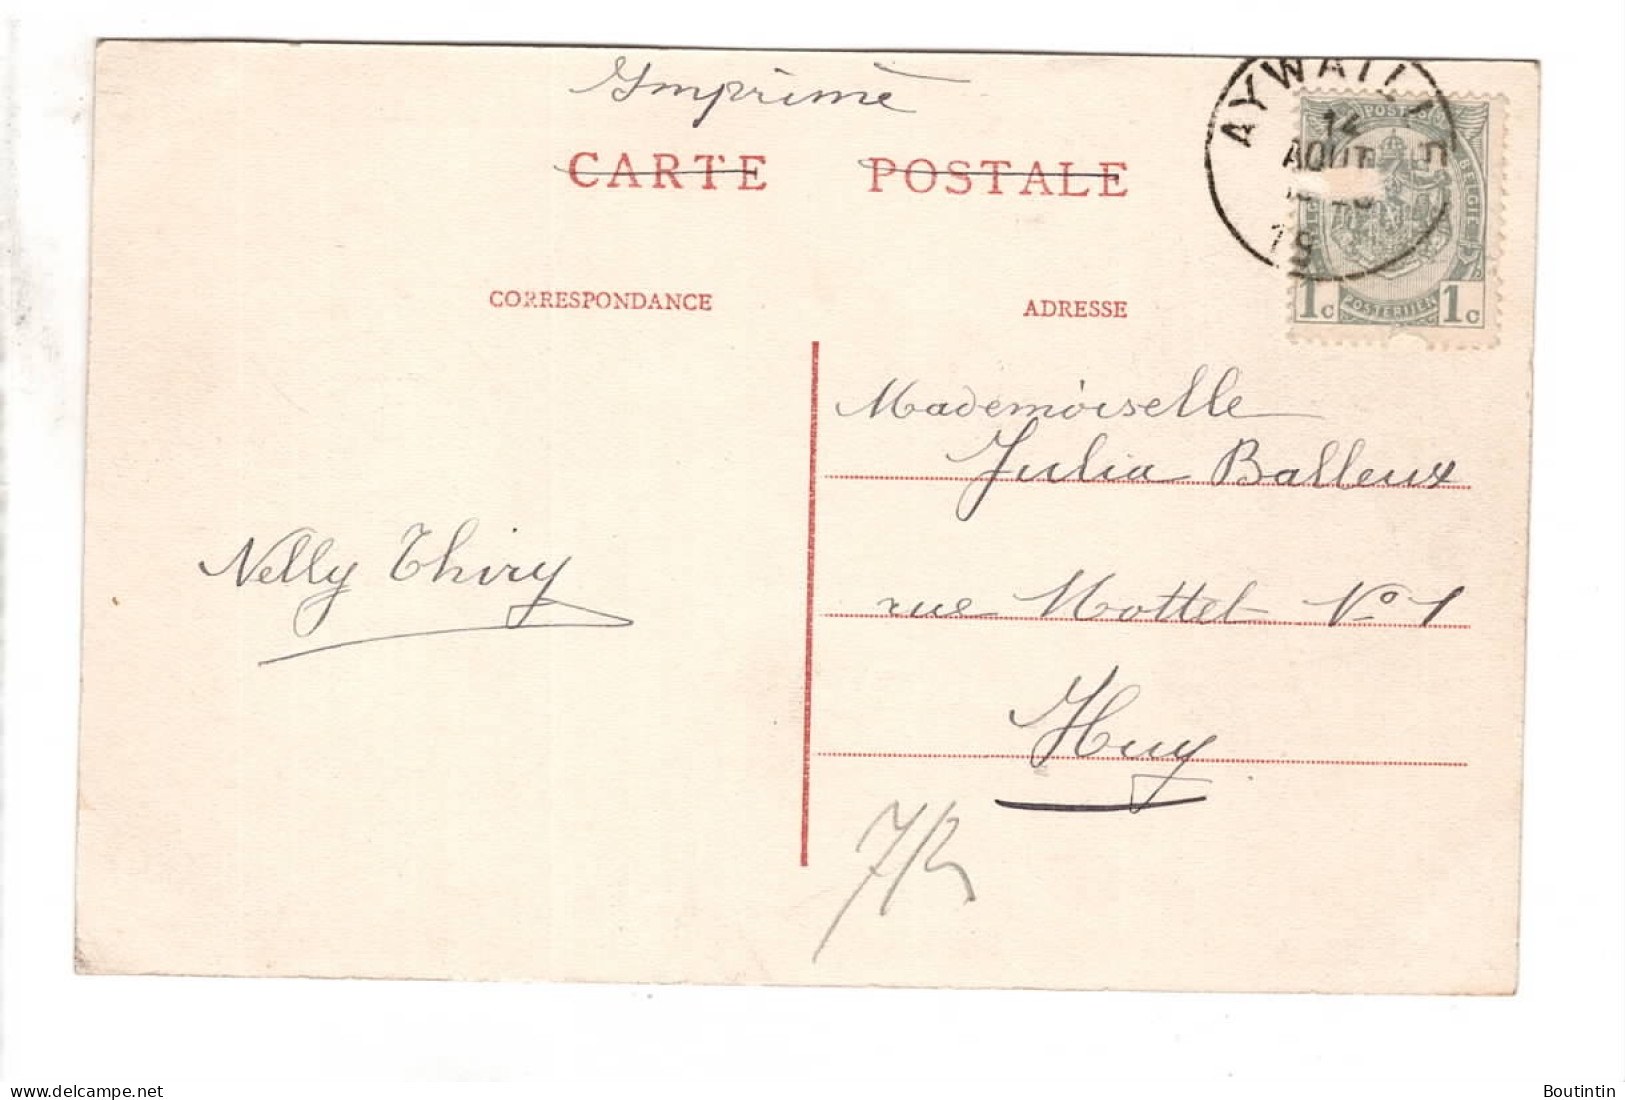 Imprimé
CARTE POSTALE
AYWAILLE
12
AOUT
19
POSTES
BELGIE
POSTERIJEN
1c 1c
CORRESPONDANCE
ADRESSE
Mademoiselle
Julia Balleux
Nelly Thiry
rue Mottet No 1
Huy
www.delcampe.net
Boutintin